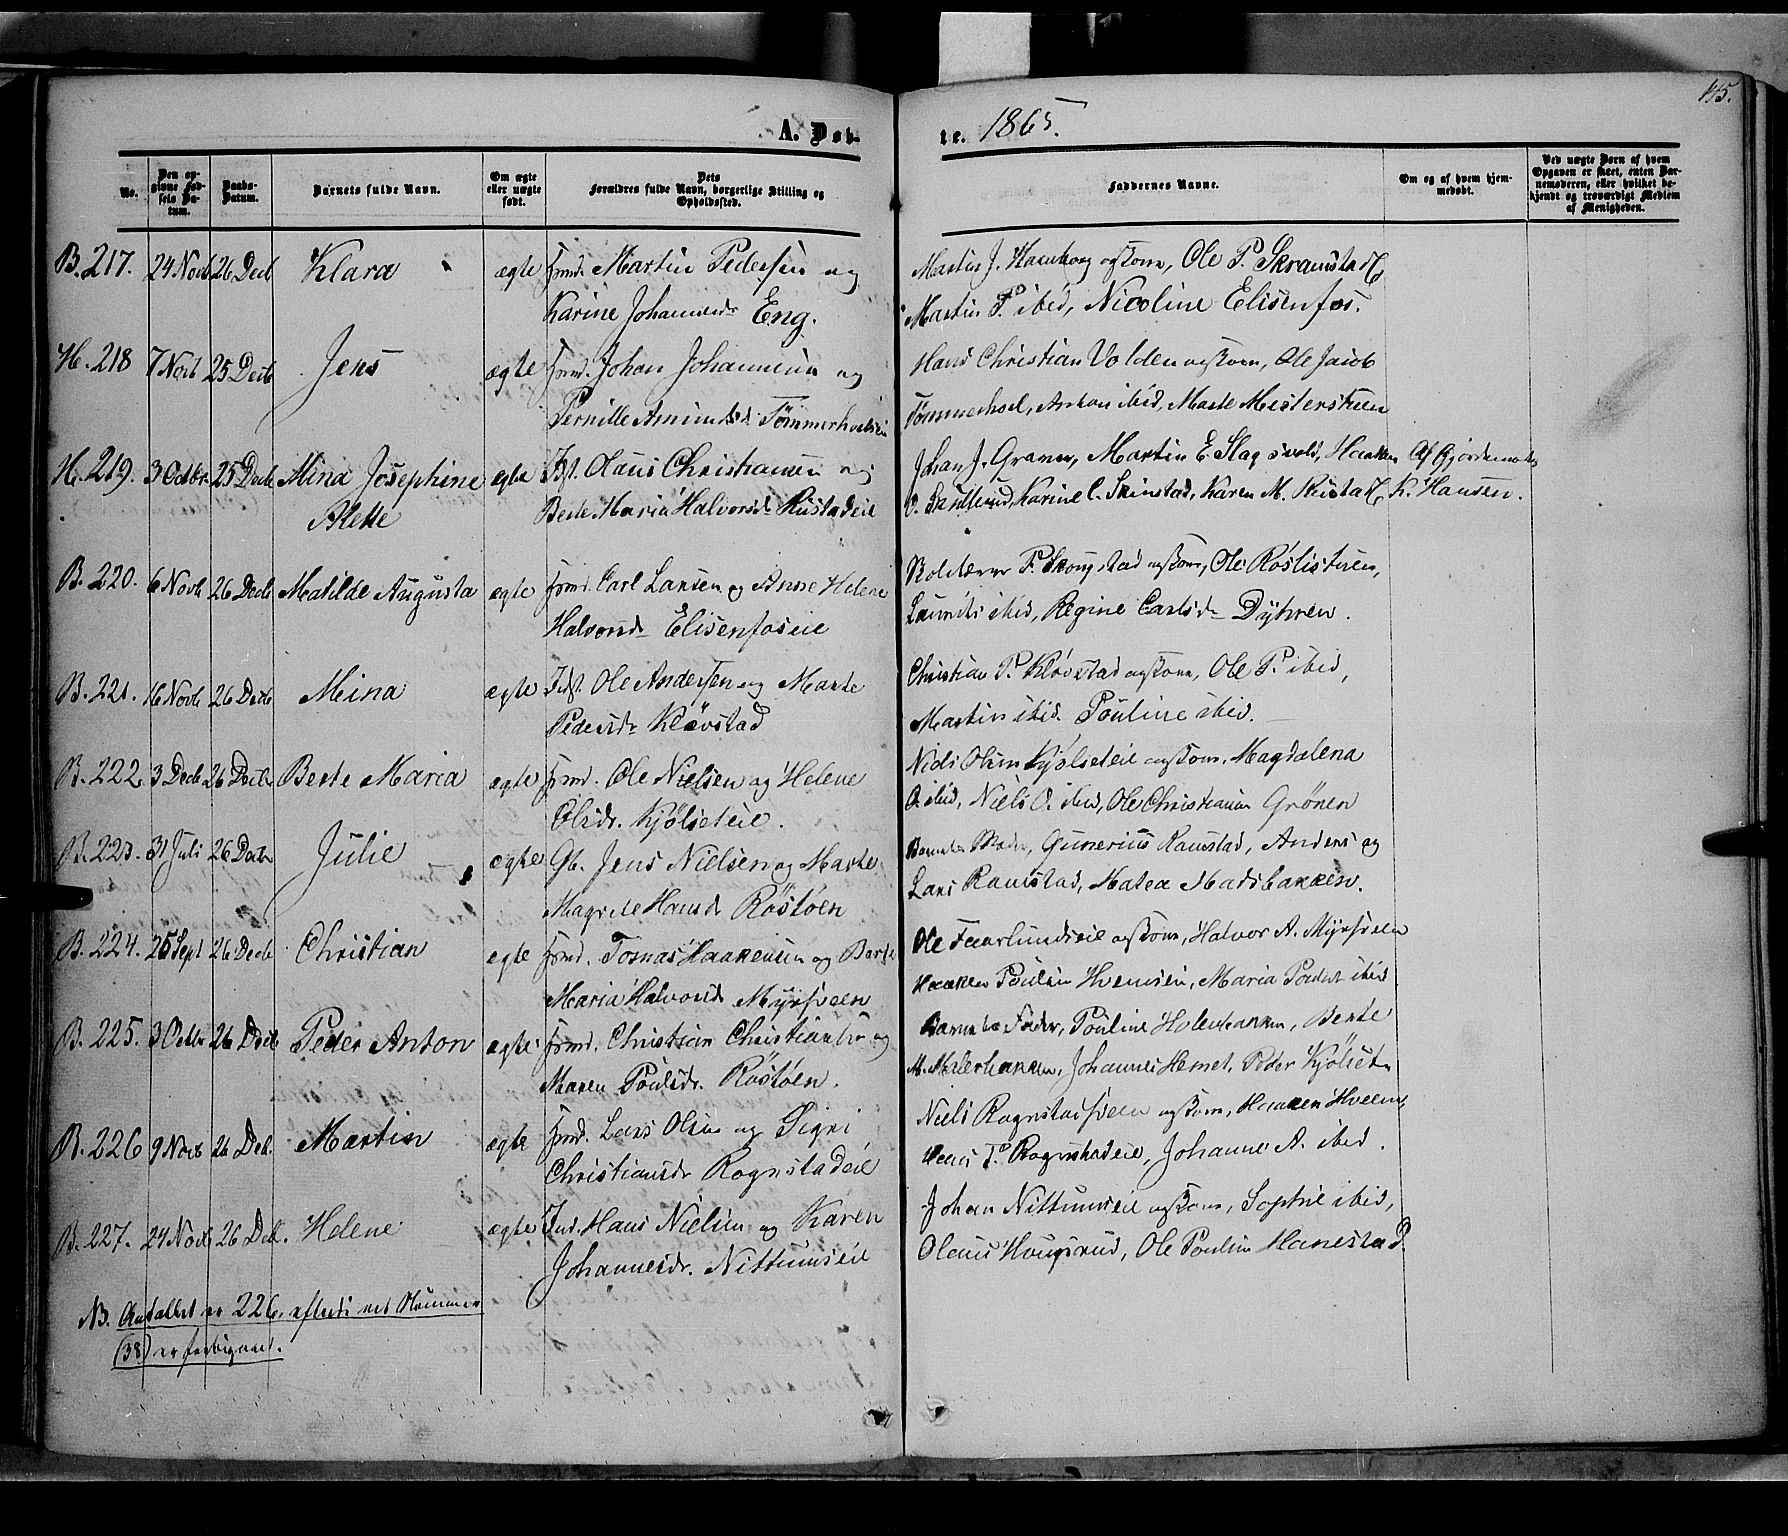 145.
A. Døb-
te. 1865.
No.
Den op-
givne Fød-
sels Da-
tum.
Daabs-
Datum.
Barnets fulde Navn.
Om ægte
eller uægte
født.
Dets
Forældres fulde Navn, borgerlige Stilling og
Opholdssted.
Faddernes Navne.
Om og af hvem hjem-
medøbt.
Ved uægte Børn af hvem
Opgaven er skeet, enten Bar-
nemoderen, eller hvilket be-
kjendt og troværdigt Medlem
af Menigheden.
B. 217. 24 Novb 26 Decb Klara ægte Husmd. Martin Pedersen og
Karine Johannesdr Eng.
Martin J. Hamborg og Kone, Ole P. Skramstad,
Martin P. ibid, Nicoline Elisenfos.
H. 218 7 Novb 25 Decb Jens ægte Husmd. Johan Johannesen og
Pernille Amundsd Tømmerholseie
Hans Christian Volden og Kone, Ole Jacob
Tømmerhol, Anton ibid, Marte Mesterstuen
H. 219. 3 Octbr 25 Decb Mina Josephine ægte Inst. Olaus Christiansen og
Alette
Berte Maria Halvorsd Rustadeie
Johan J. Gramm, Martin E. Slagsvold, Haaken
O. Sandlund, Karine C. Skinstad, Karen M. Rustad,
Af Gjordemoder
K. Hansen.
B. 220. 6 Novb 26 Decb Matilde Augusta ægte Husmd. Carl Larsen og Anne Helene
Halvorsdr Elisenfoseie
P. Skougstad og Kone, Ole Røslistuen,
Laurits ibid, Regine Carlsdr Dyhren.
B. 221. 16 Novb 26 Decb Mina ægte Inst. Ole Andersen og Marte
Pedersdr Kløvstad
Christian P. Kløvstad og Kone, Ole P. ibid,
Martin ibid. Pouline ibid.
B. 222. 3 Decb 26 Decb Berte Maria ægte Husmd. Ole Nielsen og Helene
Olsdr. Kjølseteie.
Niels Olsen Kjølseteie og Kone, Magdalena
O. ibid, Niels O. ibid, Ole Christiansen Grønen
B. 223. 31 Juli 26 Decb Julie ægte Gb. Jens Nielsen og Marte
Magrete Hansd Røstøen
Barnets Moder, Gunerius Ramstad, Anders og
Lars Ramstad, Matea Madsbakken.
B. 224. 25 Sept 26 Decb Christian ægte Husmd. Tomas Haakensen og Berte
Maria Halvorsd Myrsveen
Ole Faarlundseie og Kone, Halvor A. Myrsveen
Haaken Poulsen Hvemseie, Maria Poulsd ibid
B. 225. 3 Octbr 26 Decb Peder Anton ægte Husmd. Christian Christiansen og
Maren Poulsdr. Røstøen.
Barnets Fader, Pouline Holenbakken, Berte
M. Malerbakken, Johannes Hemet, Peder Kjølset
B. 226 9 Novb 26 Dcb. Martin ægte Husmd. Lars Olsen og Sigri
Christiansdr Rognstadeie
Niels Rognstadsveen og Kone, Haaken Hveem,
P. Rognstadeie, Johanne A. ibid.
B. 227. 24 Novb 26 Dcb. Helene ægte Ind. Hans Nielsen og Karen
Johannesdr. Nittumseie
Johan Nittumseie og Kone, Sophie ibid,
Olaus Hougsrud, Ole Poulsen Hanestad.
NB. Antallet er 226. eftersom Nummer
(38) er forbigaaet.